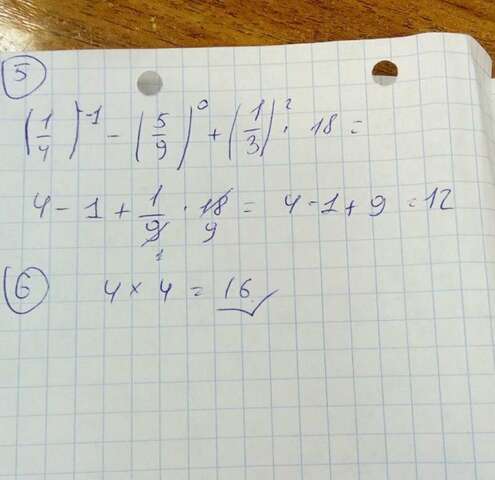 5
(1/4)^-1 - (5/9)^0 + (1/3)^2 · 18 =
4 - 1 + 1/9 · 18 = 4 - 1 + 9 = 12
1 9
6 4 × 4 = 16